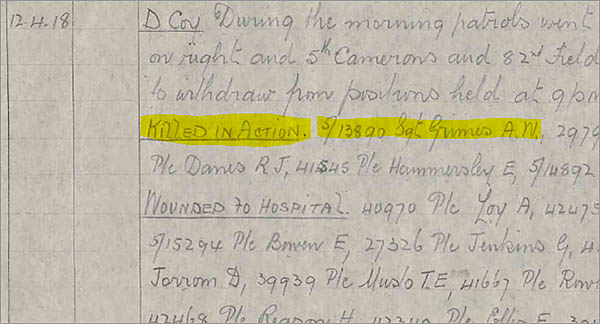 12.4.18 D Coy During the morning patrols went
on right and 5th Camerons and 82nd Field
to withdraw from positions held at 9pm
KILLED IN ACTION. 5/13890 Sgt Grimes A.W., 2979
Pte Danes R J, 41545 Pte Hammersley E, 5/14892
WOUNDED TO HOSPITAL. 40970 Pte Loy A, 42475
5/15294 Pte Bowen E, 27326 Pte Jenkins G, 4
Jorrom D, 39939 Pte Muslo T.E, 41667 Pte Row
42468 Pte Reardon H, 42340 Pte Ellis E, 30